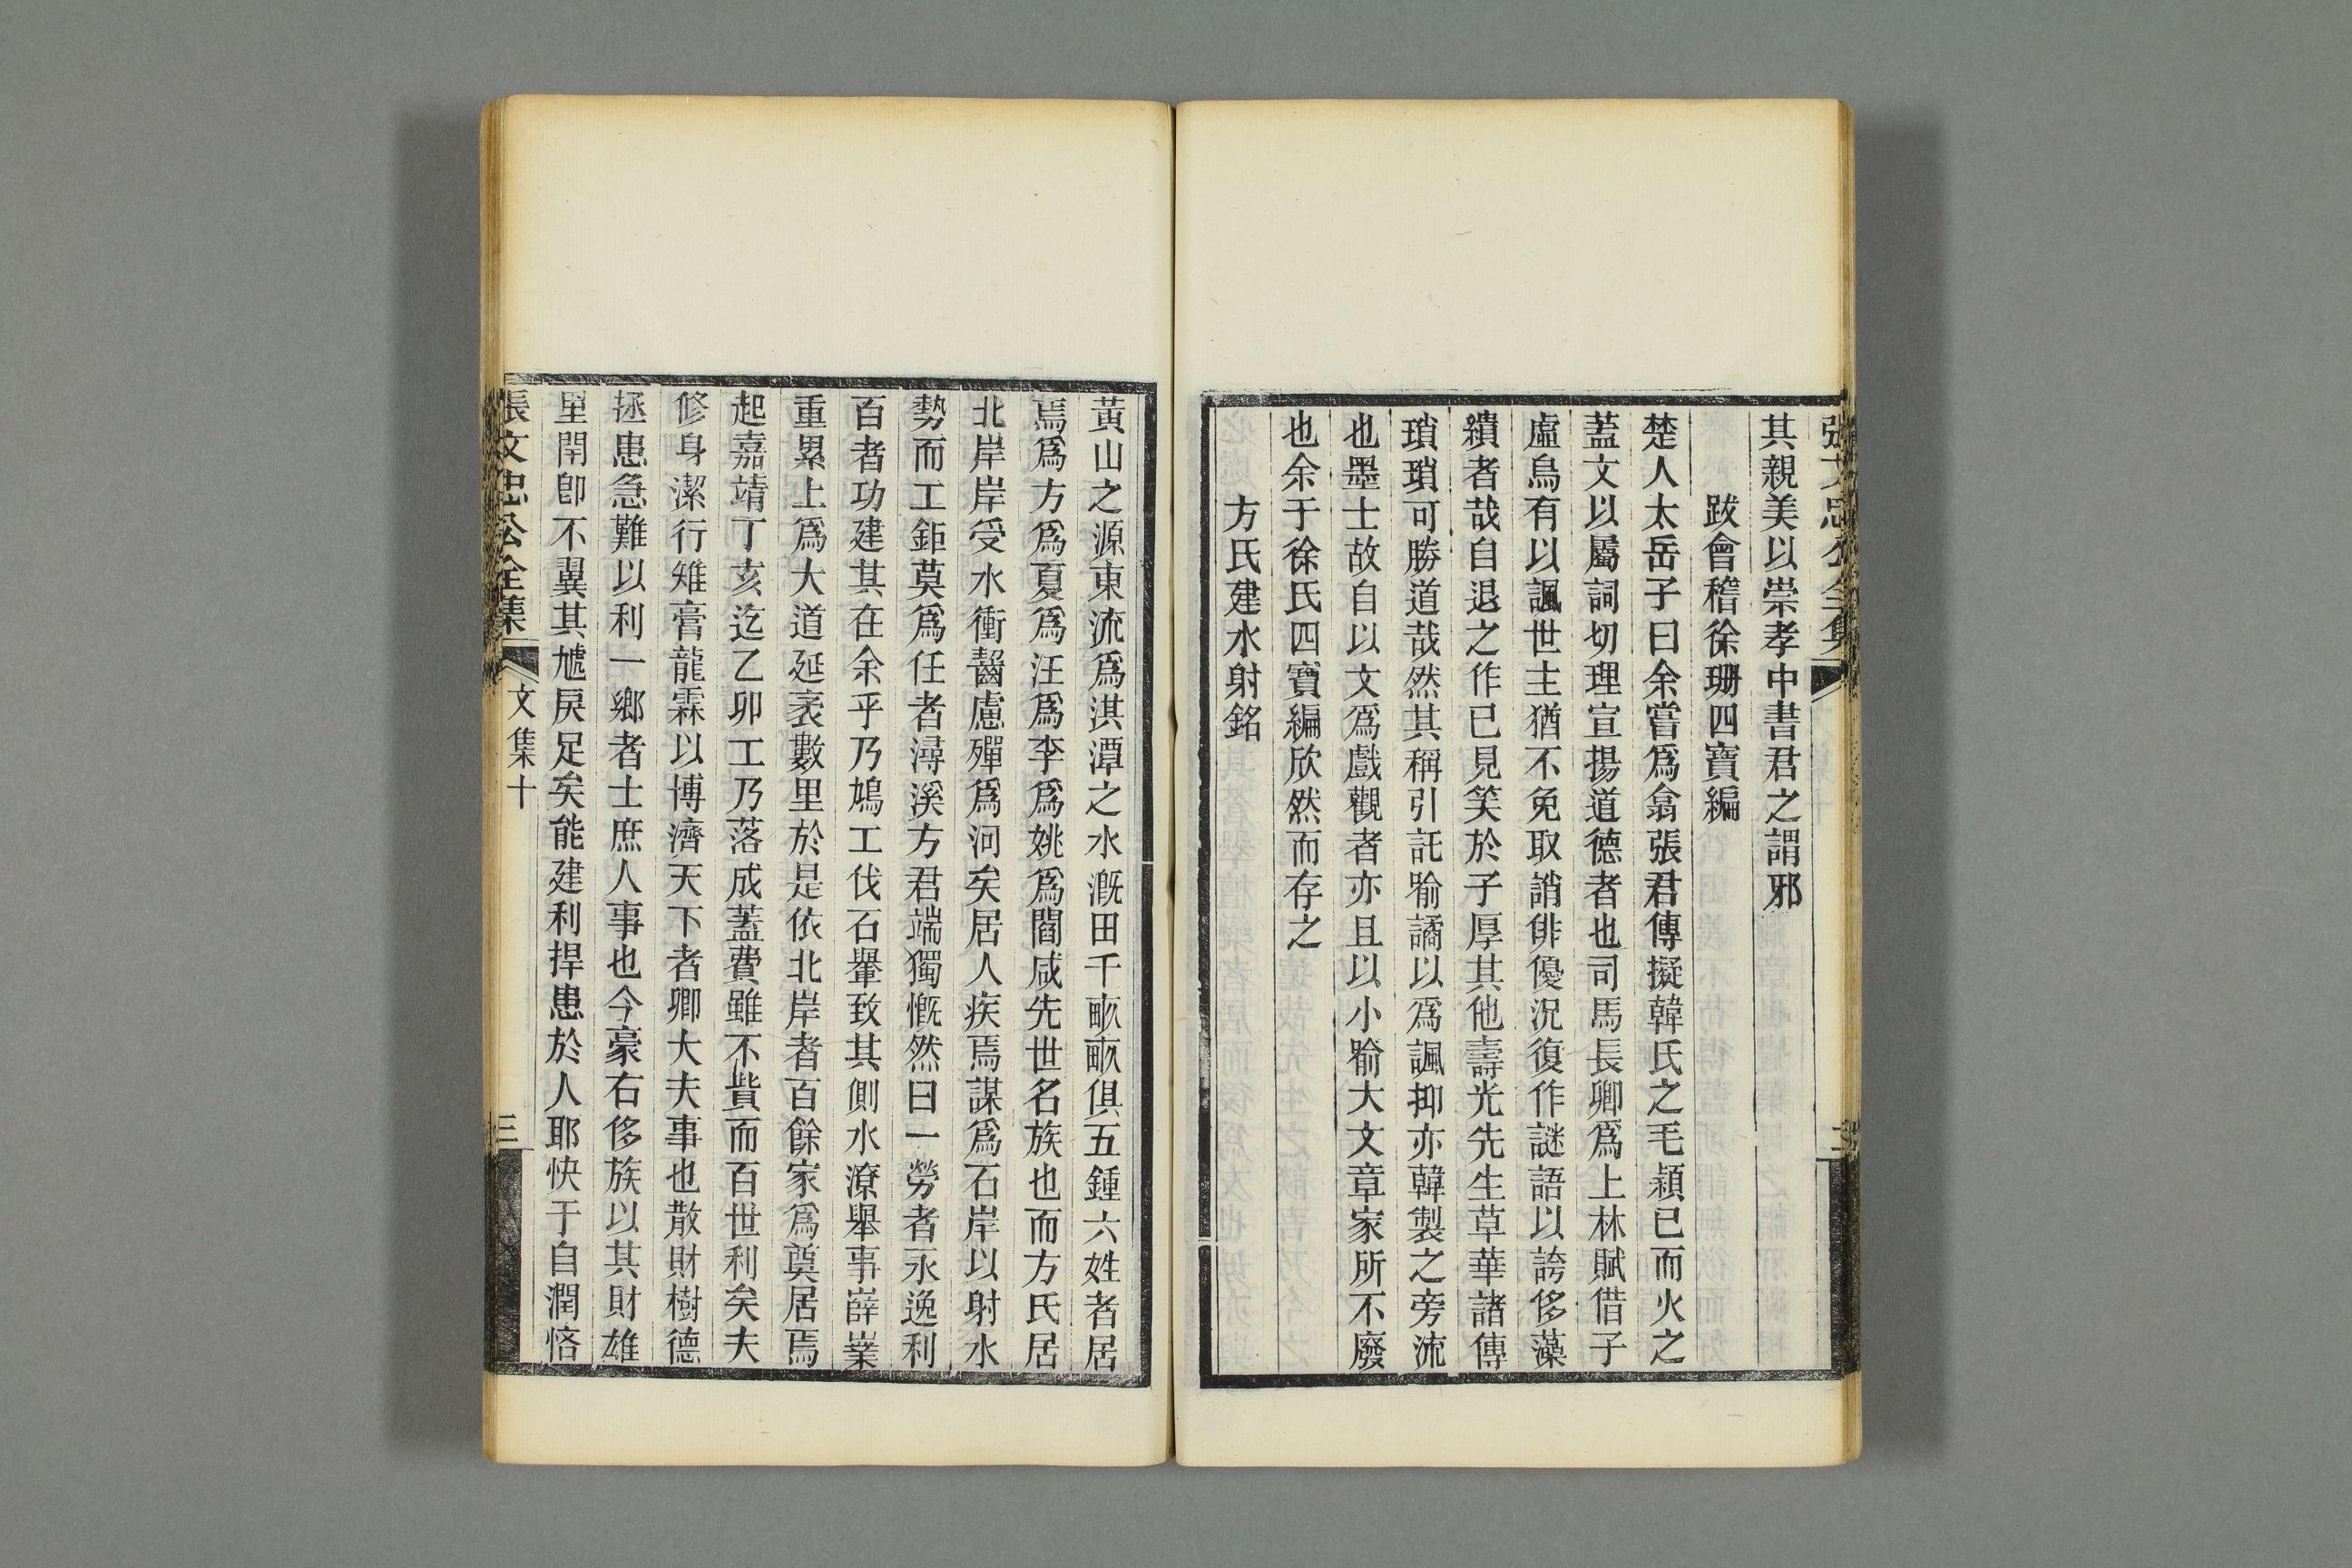 其親美以崇孝中書君之謂邪
跋會稽徐珊四寶編
楚人太岳子曰余嘗爲翕張君傳擬韓氏之毛穎已而火之
蓋文以屬詞切理宣揚道德者也司馬長卿爲上林賦借子
虛烏有以諷世主猶不免取誚俳優況復作謎語以誇侈藻
繢者哉自退之作已見笑於子厚其他壽光先生草華諸傳
瑣瑣可勝道哉然其稱引託喻譎以爲諷抑亦韓製之旁流
也墨士故自以文爲戲觀者亦且以小喻大文章家所不廢
也余于徐氏四寶編欣然而存之
方氏建水射銘
黃山之源東流爲淇潭之水溉田千畝畝俱五鍾六姓者居
焉爲方爲夏爲汪爲李爲姚爲閻咸先世名族也而方氏居
北岸岸受水衝齧慮殫爲河矣居人疾焉謀爲石岸以射水
勢而工鉅莫爲任者潯溪方君端獨慨然曰一勞者永逸利
百者功建其在余乎乃鳩工伐石轝致其側水潦舉事嶭嶪
重累上爲大道延袤數里於是依北岸者百餘家爲奠居焉
起嘉靖丁亥迄乙卯工乃落成蓋費雖不貲而百世利矣夫
修身潔行雉膏龍霖以博濟天下者卿大夫事也散財樹德
拯患急難以利一鄉者士庶人事也今豪右侈族以其財雄
里閈卽不翼其虓戾足矣能建利捍患於人耶快于自潤悋
張文忠公全集
文集十
三